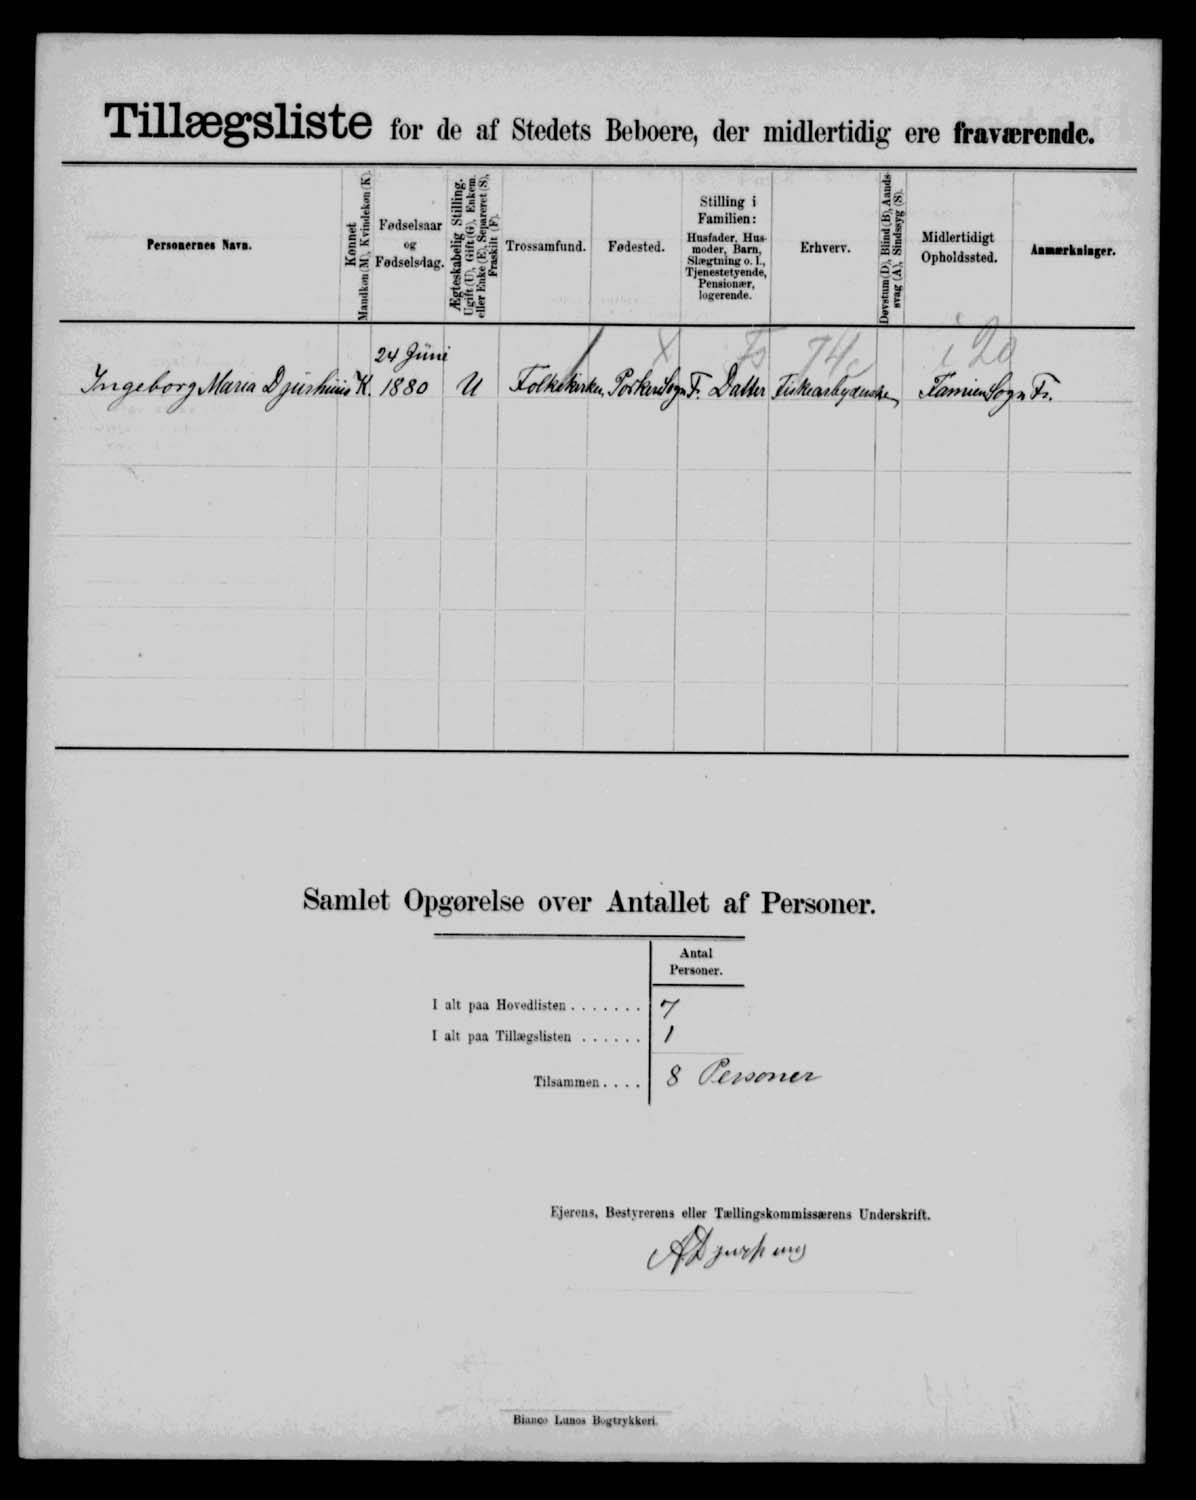 Tillægsliste for de af Stedets Beboere, der midlertidig ere fraværende.
Personernes Navn.
Kønnet
Mandkøn (M), Kvindekøn (K).
Fødselsaar
og
Fødselsdag.
Ægteskabelig Stilling.
Ugift (U), Gift (G), Enkem.
eller Enke (E), Separeret (S),
Fraskilt (F).
Trossamfund.
Fødested.
Stilling i
Familien:
Husfader, Hus-
moder, Barn,
Slægtning o. l.,
Tjenestetyende,
Pensionær,
logerende.
Erhverv.
Døvstum (D), Blind (B), Aands-
svag (A), Sindssyg (S).
Midlertidigt
Opholdssted.
Anmærkninger.
x 74 i 20
24 Juni
Ingeborg Maria Djurhuus K. 1880 U Folkekirken Porkeri Sogn F. Datter Fiskearbejderske Famien Sogn Fr.
Samlet Opgørelse over Antallet af Personer.
Antal
Personer.
I alt paa Hovedlisten . . . . . . . 7
I alt paa Tillægslisten . . . . . . 1
Tilsammen . . . . 8 Personer
Ejerens, Bestyrerens eller Tællingskommissærens Underskrift.
A Djurhuus
Bianco Lunos Bogtrykkeri.